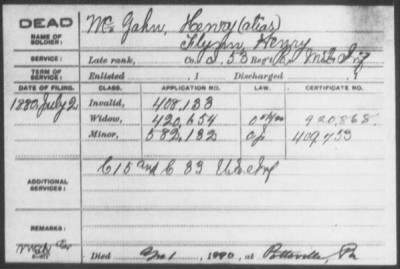 DEAD
NAME OF SOLDIER:
Mc Gahn, Henry (alias)
Flynn, Henry
SERVICE:
Late rank, Co. 53 Reg't Inf
TERM OF SERVICE:
Enlisted , 1 Discharged , 1
DATE OF FILING. CLASS. APPLICATION NO. LAW. CERTIFICATE NO.
1880, July 2 Invalid, 408,133
Widow, 420,654 920,868
Minor, 582,132 409,753
ADDITIONAL SERVICES:
C 15 and C 33 U.S. Inf
REMARKS:
Died 1, 1890, at Pottsville, Pa